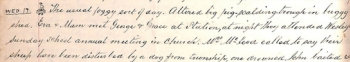 WED 17. The usual foggy sort of day. Altered big pig scalding trough in buggy
shed, Eva & Mum met George & Grace at Station, at night they attended Wesley
Sunday school annual meeting in Church. Mr. McLeod called to say their
sheep have been disturbed by a dog from township, one drowned. John carted